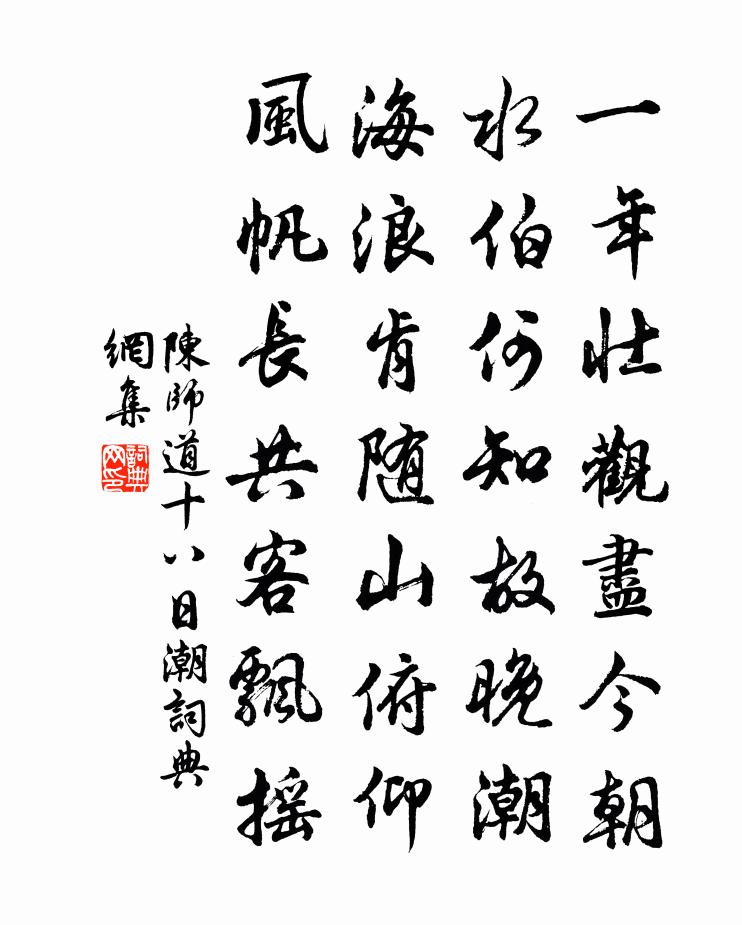 一年壯觀盡今朝
水伯何知故晚潮
海浪肯随山俯仰
風帆長共客飄摇
陳師道十八日潮詞典
網集
詞典
网印